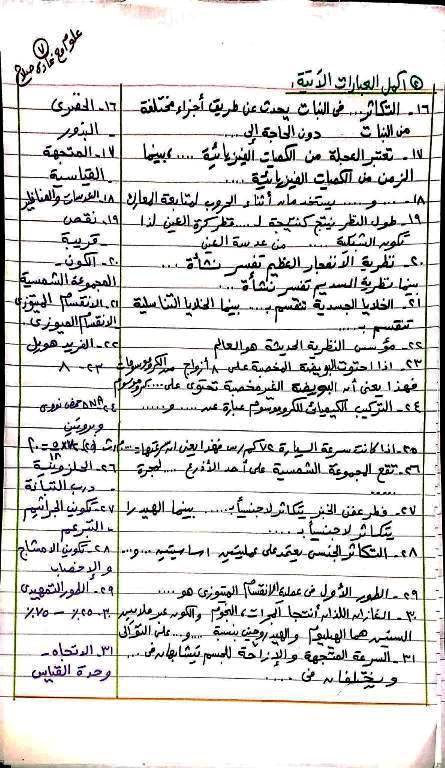 علوم مع غادة صلاح
٧
٥ أكمل العبارات الآتية:
١٦- التكاثر... فى النبات يحدث عن طريق أجزاء مختلفة
من النبات دون الحاجة إلى...
١٦- الخضرى
- البذور
١٧- تعتبر العجلة من الكميات الفيزيائية ....، بينما
الزمن من الكميات الفيزيائية ....
١٧- المتجهة
القياسية
١٨- .... و ..... يستخدمان أثناء الحروب لمتابعة المعارك
١٨- العدسات والمناظير
١٩- طول النظر ينتج كنتيجة لـ .... قطر كرة العين لذا
تكون الشبكية .... من عدسة العين
١٩- نقص
- قريبة
٢٠- نظرية الانفجار العظيم تفسر نشأة ...
بينما نظرية السديم تفسر نشأة ....
٢٠- الكون -
المجموعة الشمسية
٢١- الخلايا الجسدية تنقسم بـ .... بينما الخلايا التناسلية
تنقسم بـ ....
٢١- الانقسام الميتوزى
الانقسام الميوزى
٢٢- مؤسس النظرية الحديثة هو العالم
٢٢- الفريد هويل
٢٣- اذا احتوت البويضة المخصبة على ٨ أزواج من الكروموسومات
فهذا يعنى أن البويضة الغير مخصبة تحتوى على .... كروموسوم
٢٣- ٨
٢٤- التركيب الكيميائى للكروموسوم عبارة عن .... و ....
٢٤- DNA حمض نووى
وبروتين
٢٥- اذا كانت سرعة السيارة ٧٢ كم/س فهذا يعنى أن سرعتها .... م/ث
٢٦- تقع المجموعة الشمسية على أحد الأذرع .... لمجرة
.....
٢٦- الحلزونية
- درب التبانة
٢٧- فطر عفن الخبز يتكاثر لاجنسياً بـ .... بينما الهيدرا
يتكاثر لاجنسياً بـ ....
٢٧- تكوين الجراثيم
- التبرعم
٢٨- التكاثر الجنسى يعتمد على عمليتين أساسيتين ... و ...
٢٨- تكوين الأمشاج
والإخصاب
٢٩- الطور الأول فى عملية الانقسام الميتوزى هو ....
٢٩- الطور التمهيدى
٣٠- الغازان اللذان أنتجا المجرات والنجوم والكون عبر ملايين
السنين هما الهيليوم والهيدروجين بنسبة .... و ... على التوالى
٣٠- ٢٥٪ - ٧٥٪
٣١- السرعة المتجهة والإزاحة للجسم يتشابهان فى ...
ويختلفان فى ....
٣١- الاتجاه -
وحدة القياس